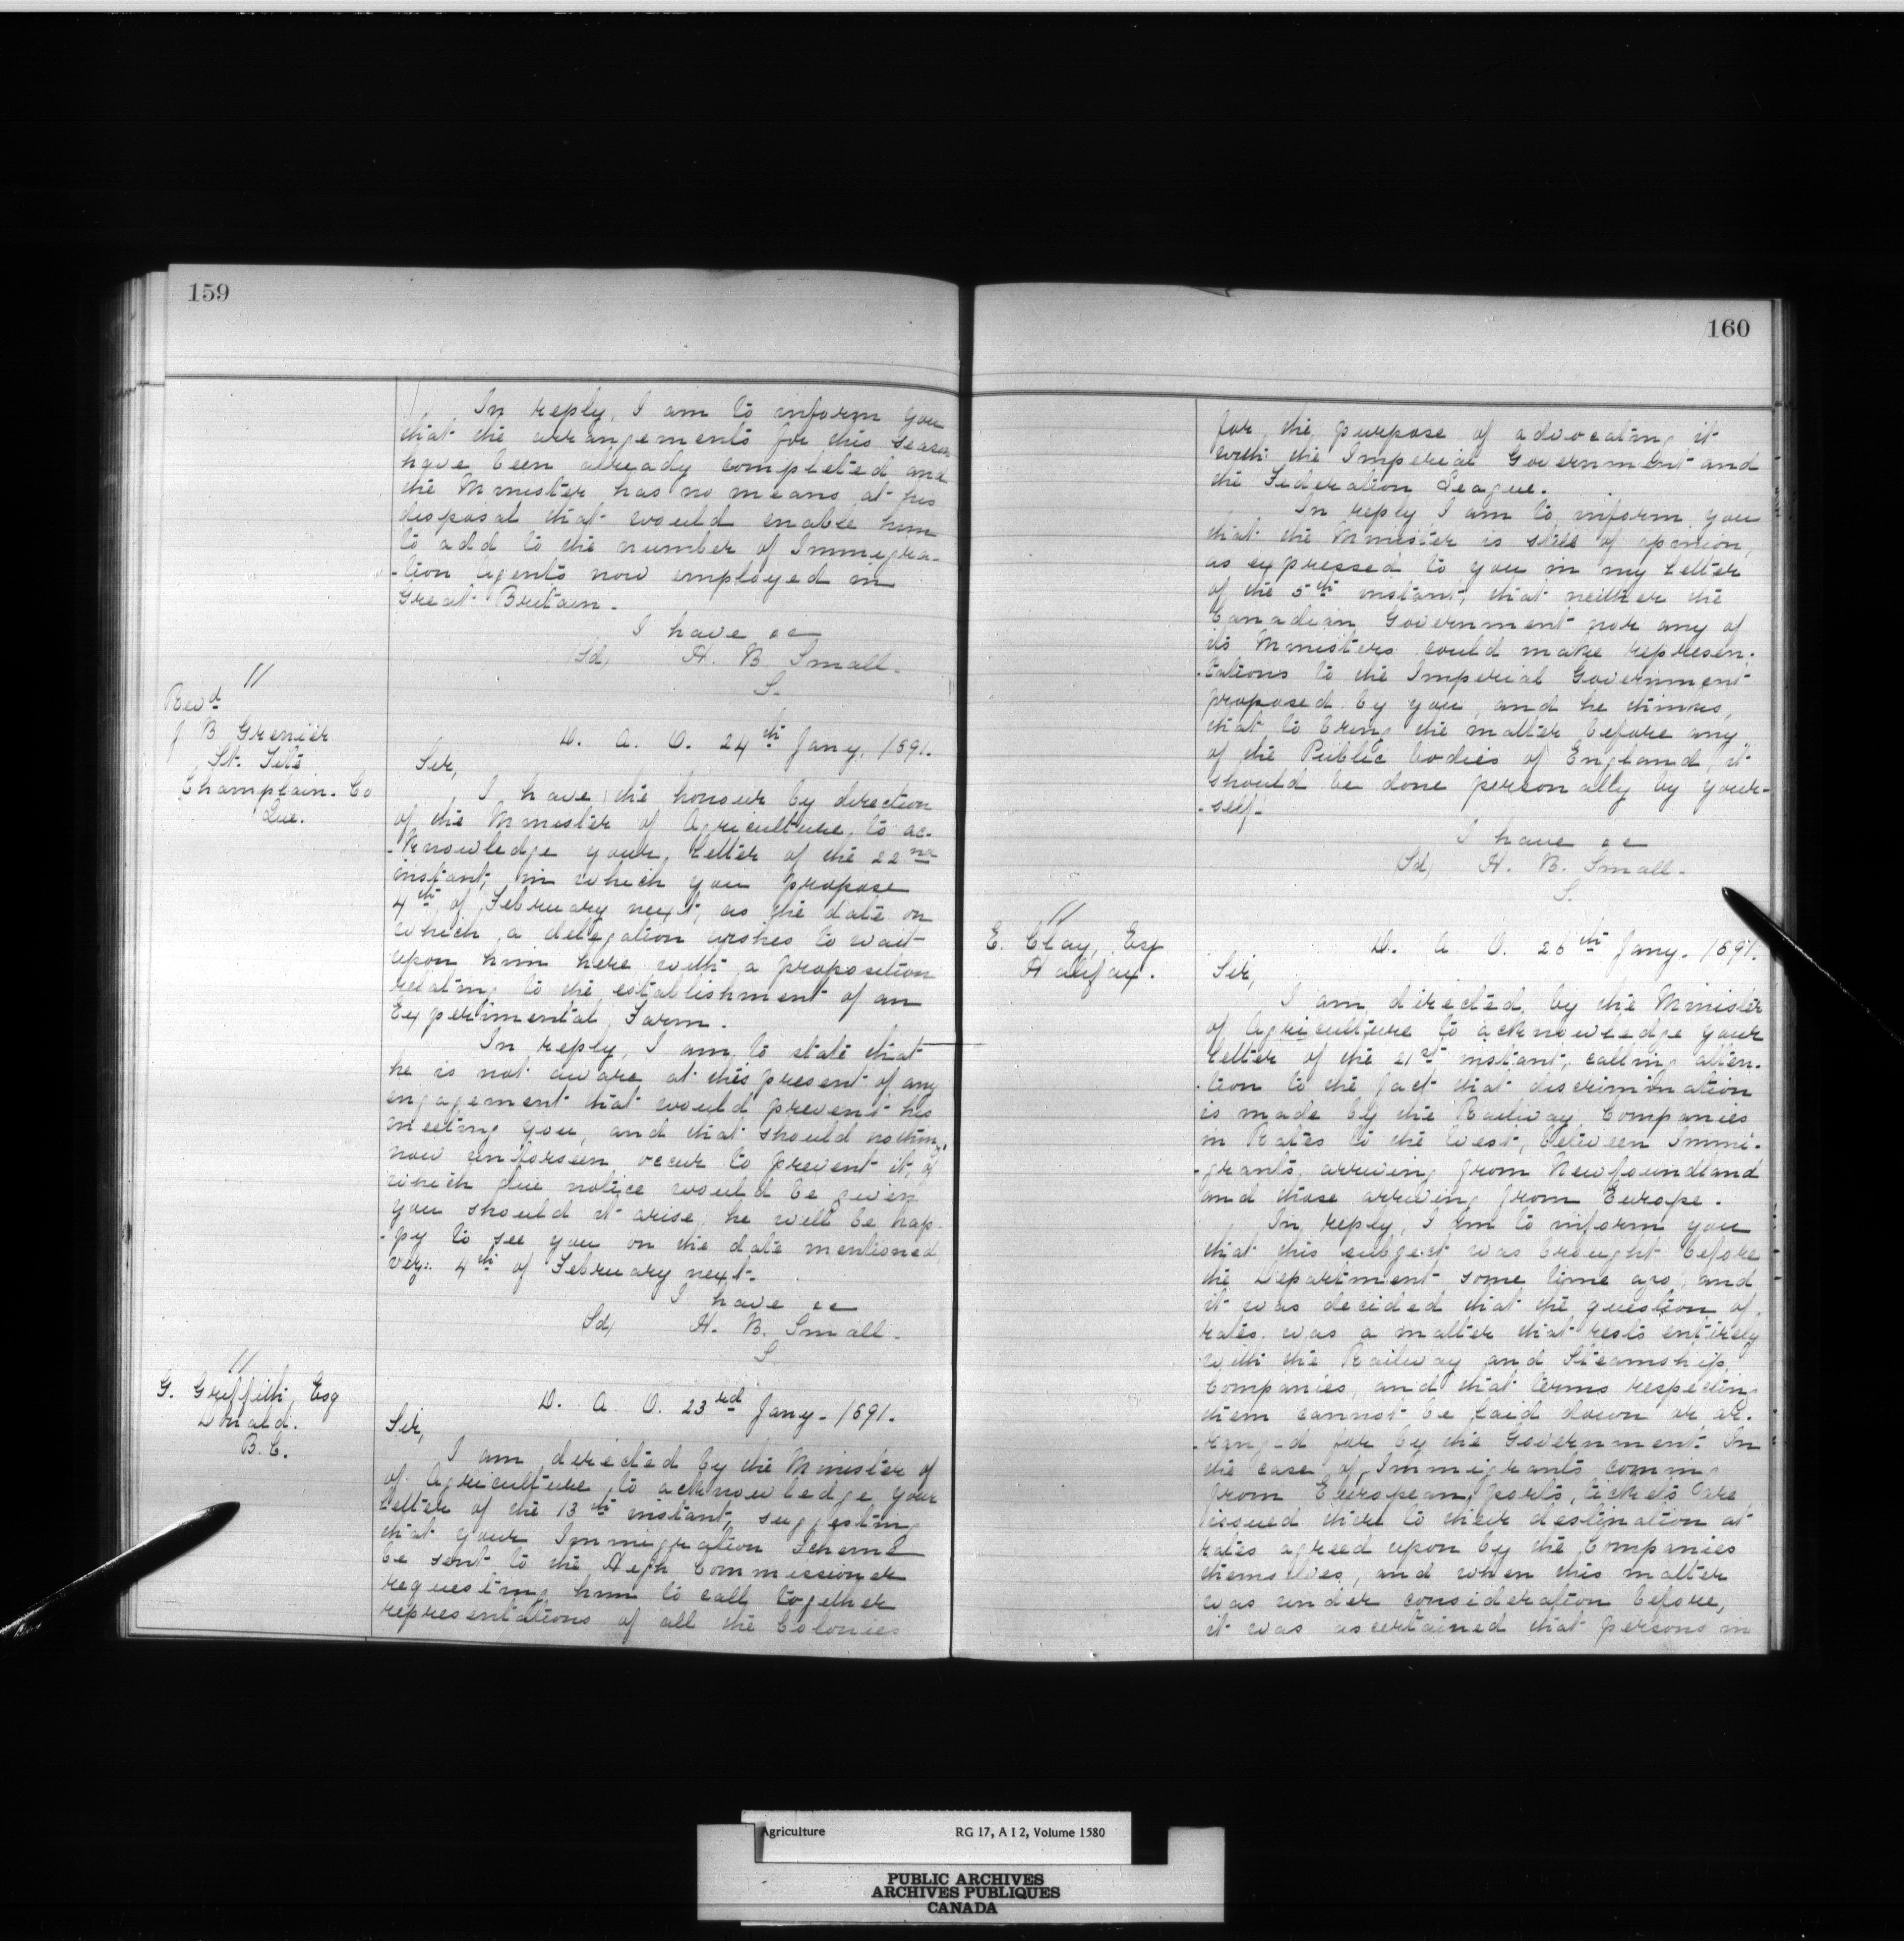 159
In reply, I am to inform you
that the arrangements for this season
have been already completed and
the Minister has no means at his
disposal that would enable him
to add to the number of Immigra-
-tion Agents now employed in
Great Britain.
I have &c
(Sd) H. B. Small.
S.
"
Revd
J B Grenier
St. Tite
Champlain. Co
Que.
D. A. O. 24th Jany. 1891.
Sir,
I have the honour by direction
of the Minister of Agriculture, to ac-
-knowledge your letter of the 22nd
instant, in which you propose
4th of February next, as the date on
which a delegation wishes to wait
upon him here with a proposition
relating to the establishment of an
Experimental Farm.
In reply, I am to state that
he is not aware at this present of any
engagement that would prevent his
meeting you, and that should nothing
now unforseen occur to prevent it, of
which due notice would be given
you should it arise, he will be hap-
-py to see you on the date mentioned
viz: 4th of February next.
I have &c
(Sd) H. B. Small.
S
"
G. Griffith, Esq
Donald.
B. C.
D. A. O. 23rd Jany. 1891.
Sir,
I am directed by the Minister of
of Agriculture to acknowledge your
letter of the 13th instant, suggesting
that your Immigration Scheme
be sent to the High Commissioner
requesting him to call together
representations of all the Colonies
160
for the purpose of advocating it
with the Imperial Government and
the Federation League.
In reply I am to inform you
that the Minister is still of opinion,
as expressed to you in my letter
of the 5th instant, that neither the
Canadian Government nor any of
its Ministers could make represen-
-tations to the Imperial Government
proposed by you, and he thinks,
that to bring the matter before any
of the Public bodies of England, it
should be done personally by your-
-self.
I have &c
(Sd) H. B. Small.
S.
"
E. Clay, Esq
Halifax.
D. A. O. 26th Jany. 1891.
Sir,
I am directed by the Minister
of Agriculture to acknowledge your
letter of the 21st instant, calling atten-
-tion to the fact that discrimination
is made by the Railway Companies
in Rates to the West, between Immi-
-grants arriving from Newfoundland
and those arriving from Europe.
In reply, I am to inform you
that this subject was brought before
the Department some time ago, and
it was decided that the question of
rates was a matter that rests entirely
with the Railway and Steamship
Companies, and that terms respecting
them cannot be laid down or ar-
-ranged for by the Government. In
the case of Immigrants coming
from European ports, tickets are
issued there to their destination at
rates agreed upon by the Companies
themselves, and when this matter
was under consideration before,
it was ascertained that persons in
Agriculture RG 17, A I 2, Volume 1580
PUBLIC ARCHIVES
ARCHIVES PUBLIQUES
CANADA